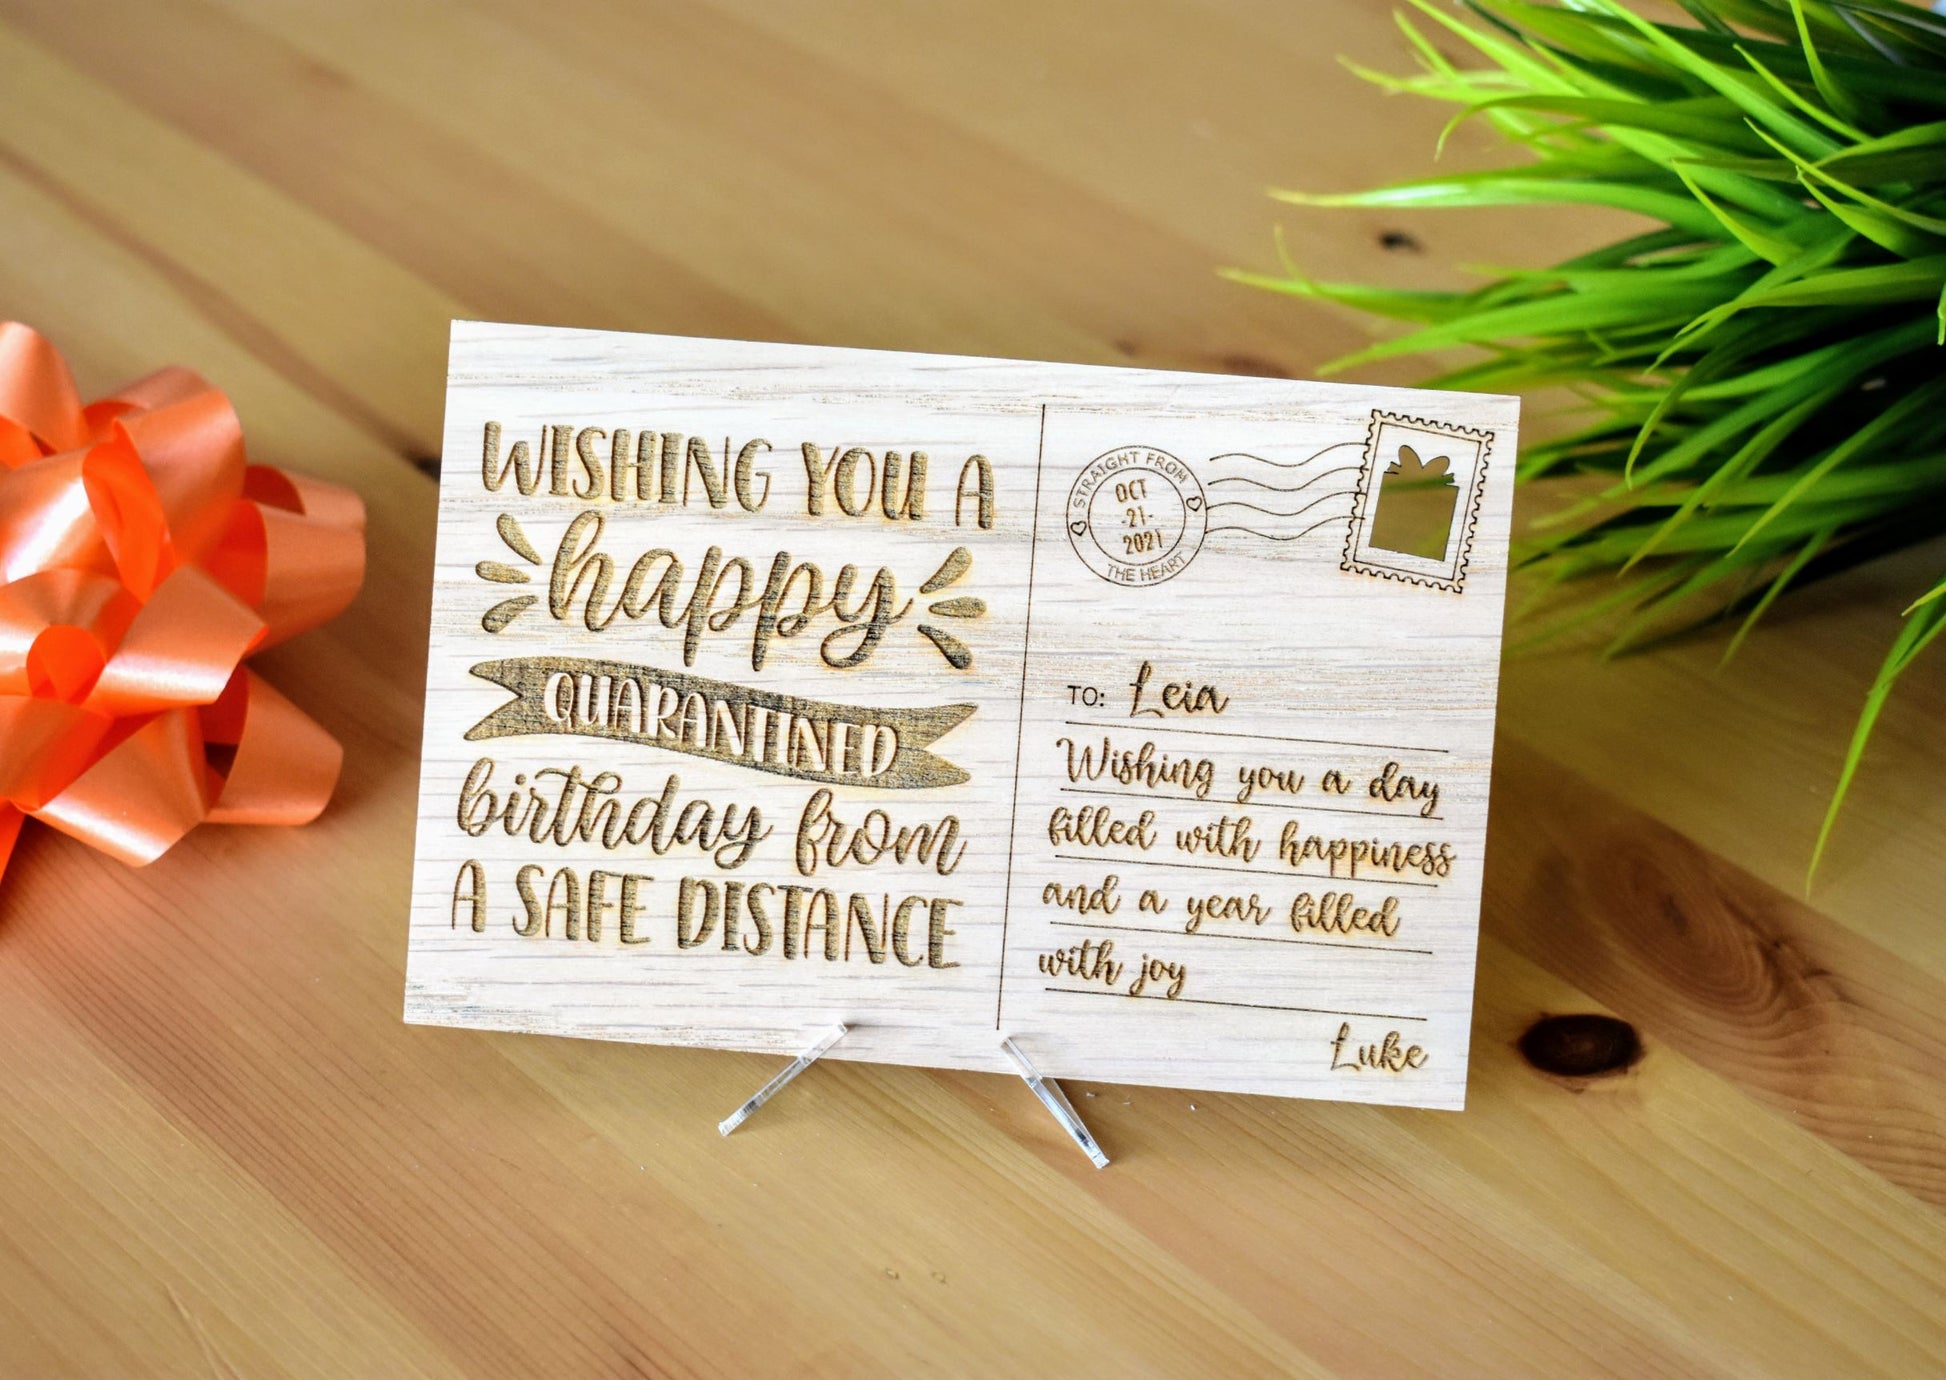 WISHING YOU A
happy
QUARANTINED
birthday from
A SAFE DISTANCE
STRAIGHT FROM
OCT
-21-
2021
THE HEART
TO: Leia
Wishing you a day
filled with happiness
and a year filled
with joy
Luke